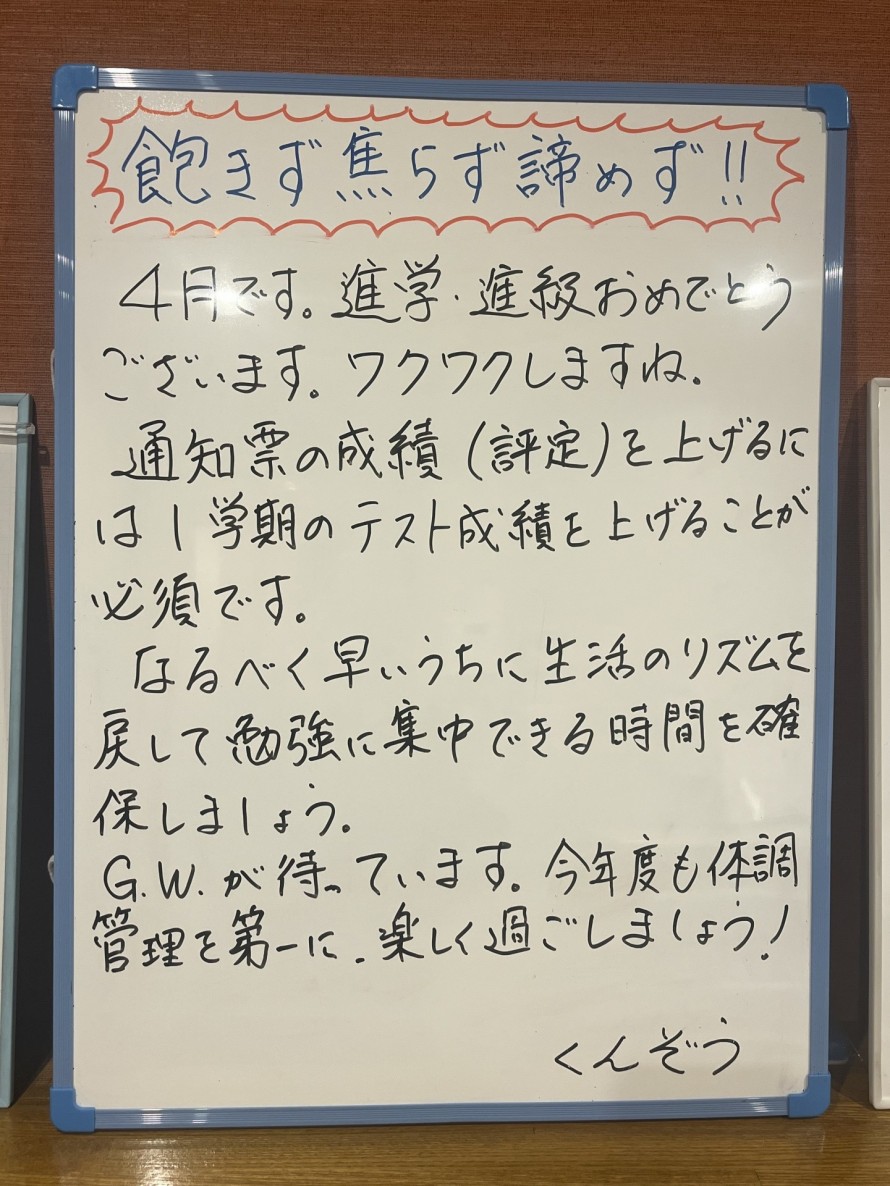 飽きず焦らず諦めず!!
4月です。進学・進級おめでとう
ございます。ワクワクしますね。
通知票の成績(評定)を上げるに
は1学期のテスト成績を上げることが
必須です。
なるべく早いうちに生活のリズムを
戻して勉強に集中できる時間を確
保しましょう。
G.W.が待っています。今年度も体調
管理を第一に、楽しく過ごしましょう!
くんぞう